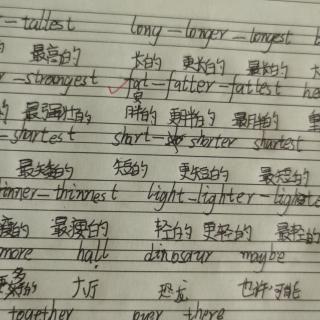 - tallest long - longer - longest
最高的 长的 更长的 最长的
- strongest fat - fatter - fattest
最强壮的 胖的 更胖的 最胖的
- shortest short - shorter shortest
最矮的 短的 更短的 最短的
inner - thinnest light - lighter - lightest
瘦的 最瘦的 轻的 更轻的 最轻的
more hall dinosaur maybe
大厅 恐龙 也许,可能
together over there